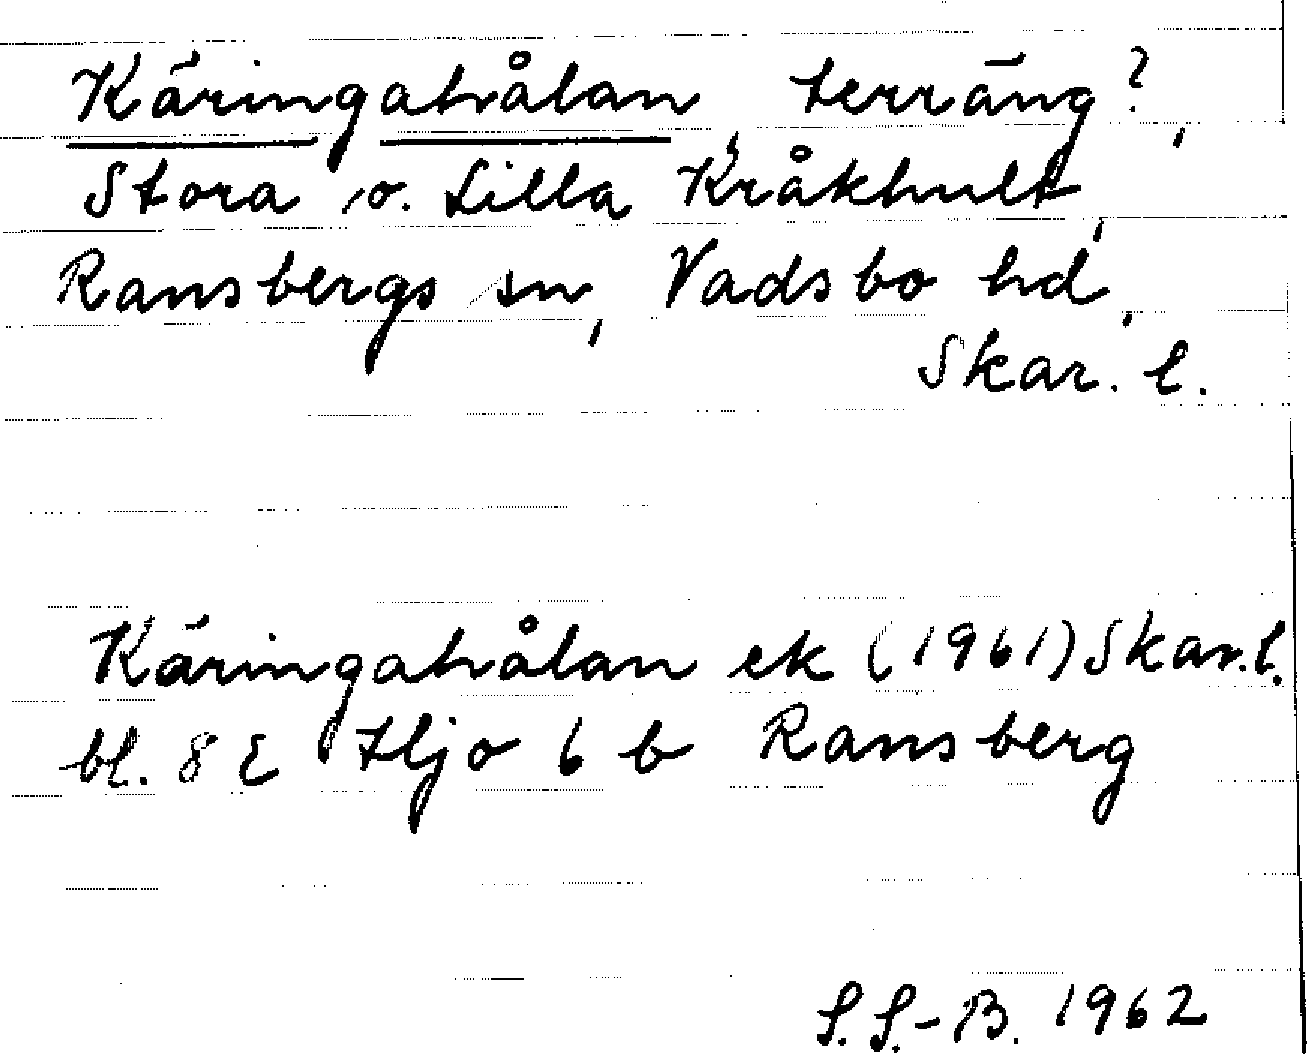 Käringahålan, terräng?,
Stora o. Lilla Kråkhult,
Ransbergs sn, Vadsbo hd,
Skar. l.
Käringahålan ek (1961) Skar. l.
bl. 8 E Hjo 6 b Ransberg
S. S.-B. 1962